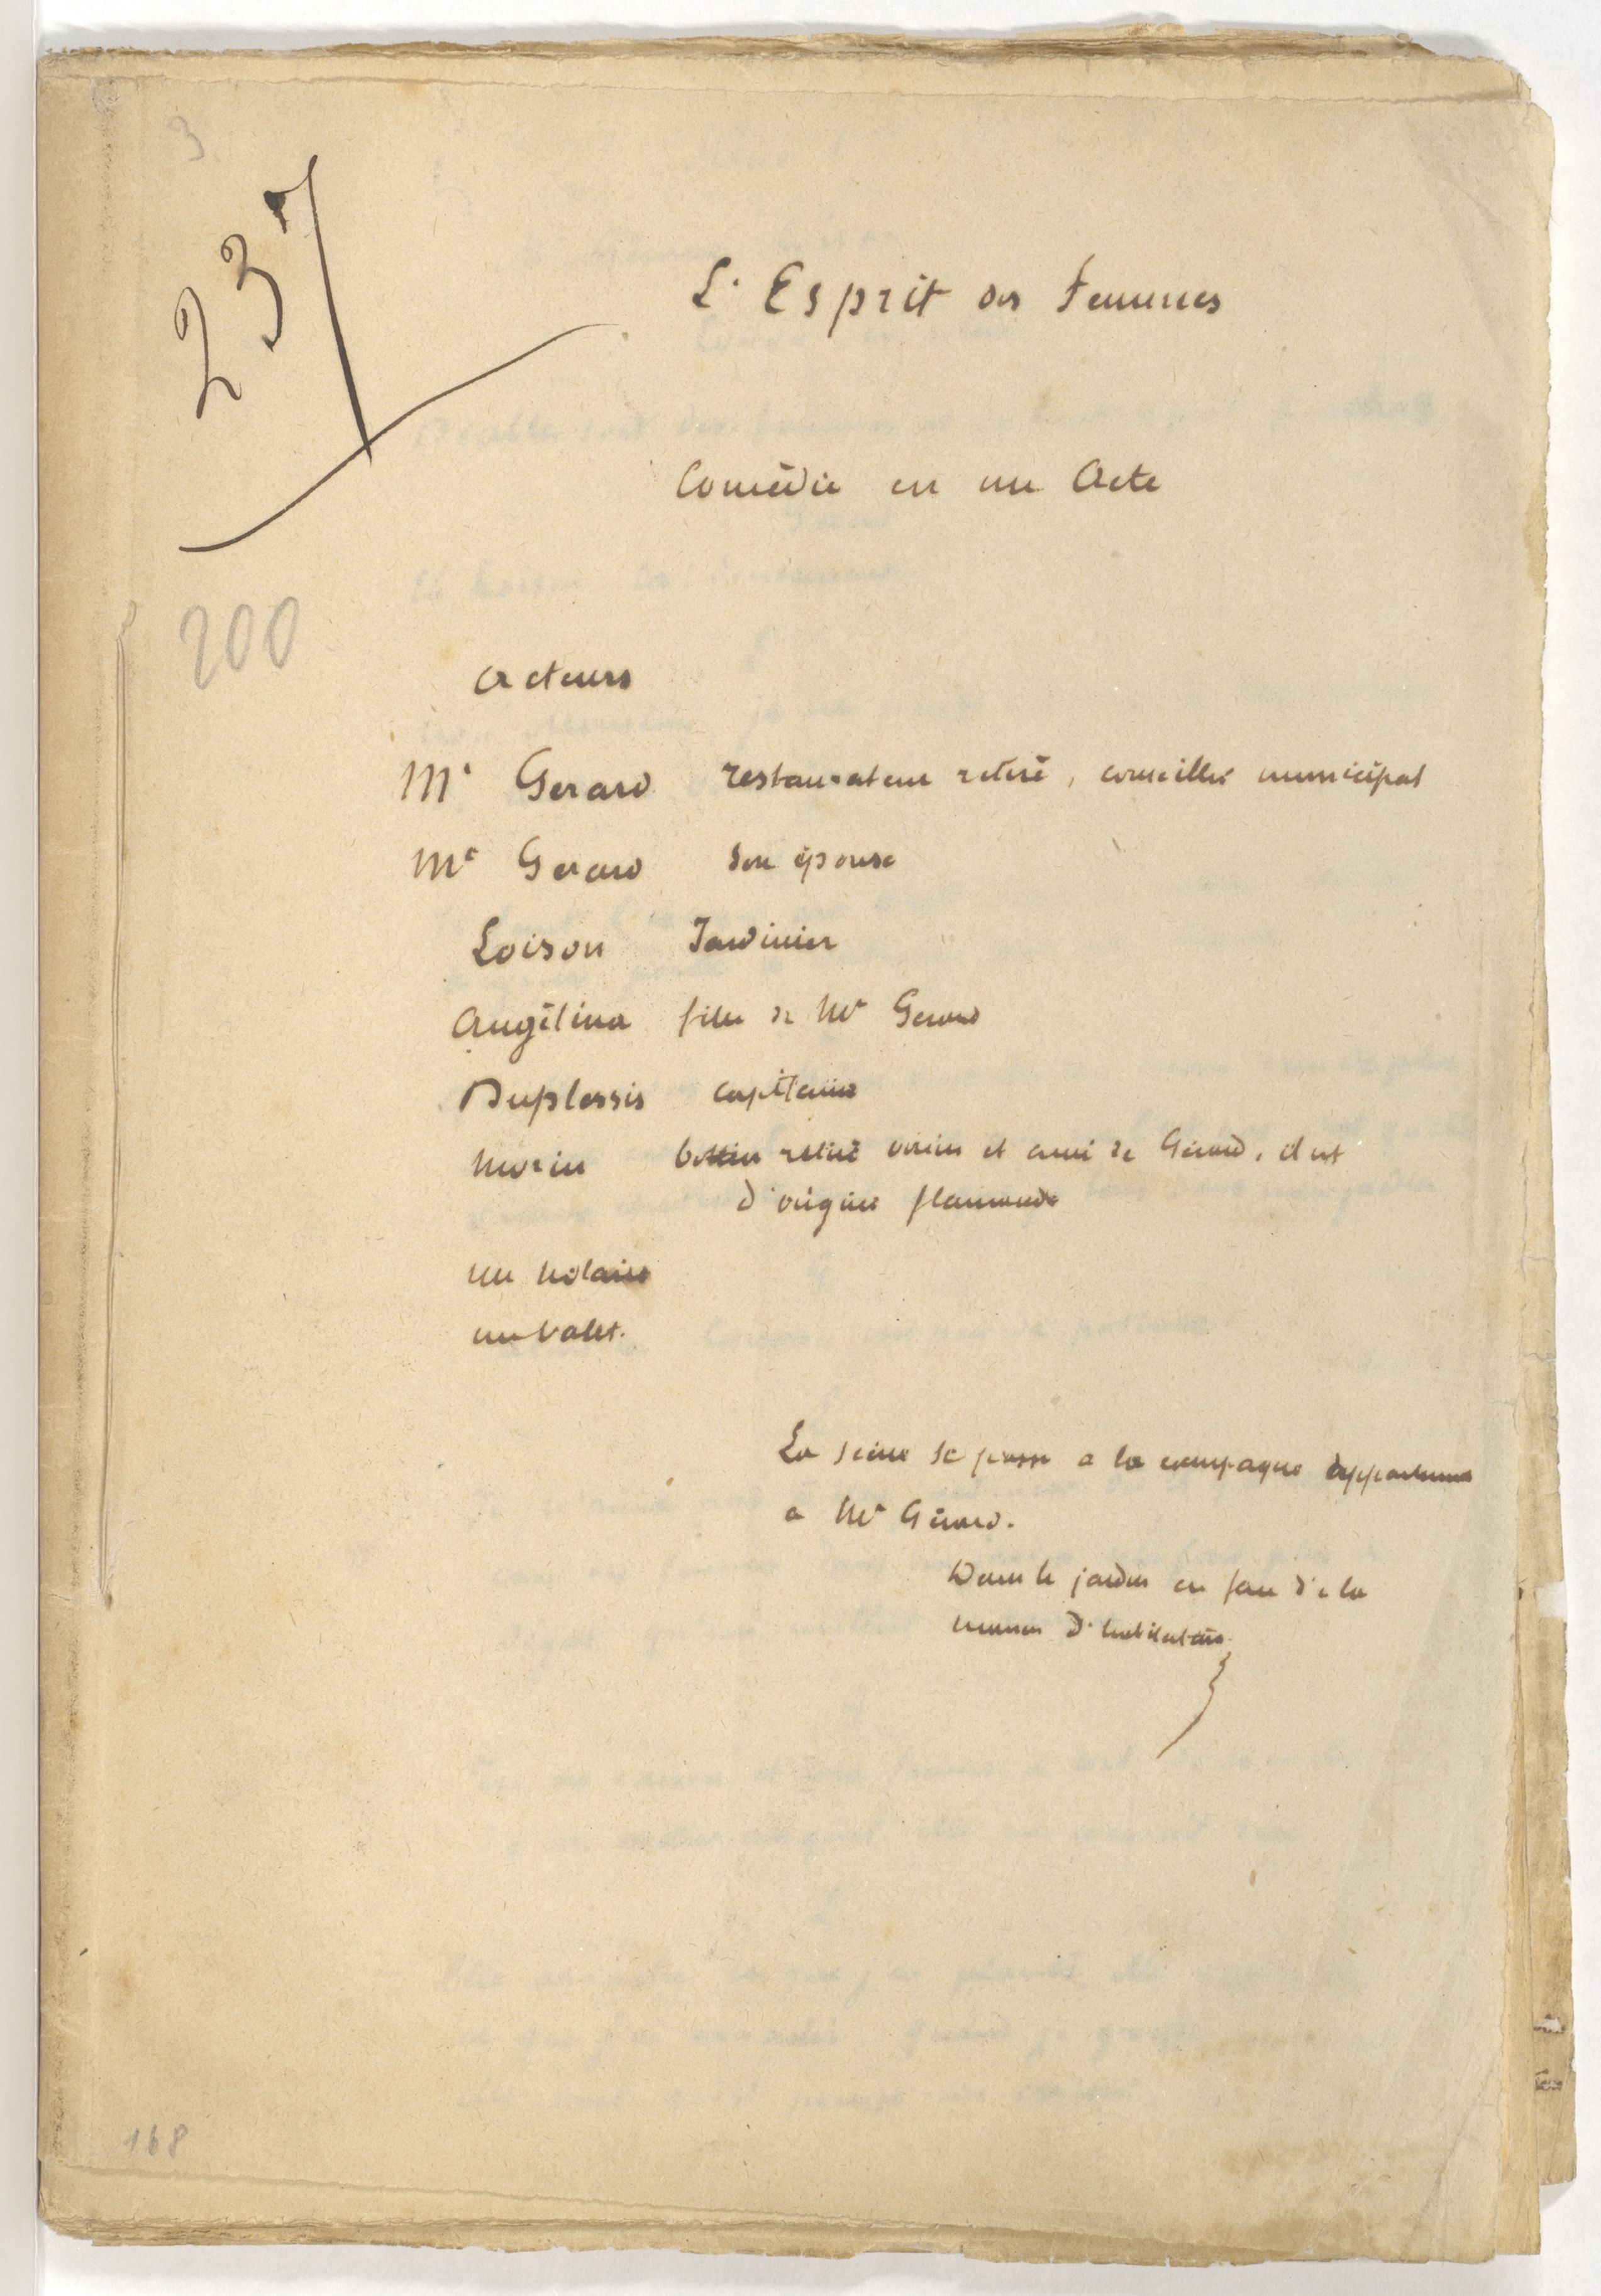 3
237
L'Esprit des Femmes
Comédie en un Acte
200
Acteurs
Mr Gerard restaurateur retiré, conseiller municipal
Me Gerard son épouse
Loison Jardinier
Angélina fille de Mr Gerard
Duplessis capitaine
Morin bottier retiré voisin et ami de Gérard, il est
d'origine flamande
un notaire
un valet.
La scène se passe a la campagne appartenant
a Mr Gérard.
Dans le jardin en face de la
maison d'habitation
168